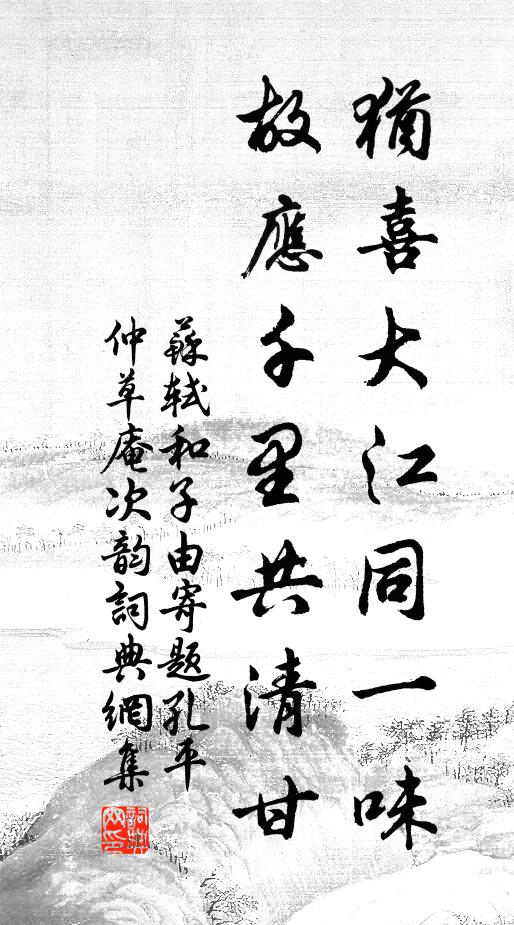 猶喜大江同一味
故應千里共清甘
蘇軾和子由寄題孔平
仲草庵次韵詞典網集